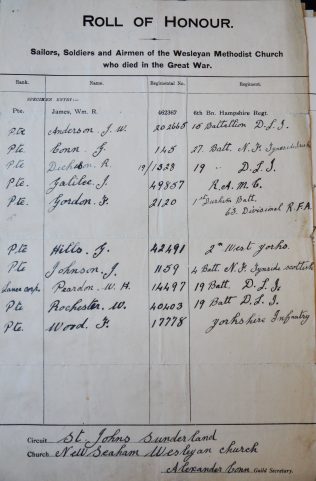 ROLL OF HONOUR.
Sailors, Soldiers and Airmen of the Wesleyan Methodist Church
who died in the Great War.
Rank. Name. Regimental No. Regiment.
SPECIMEN ENTRY:—
Pte. James, Wm. R. 462367 6th Bn. Hampshire Regt.
Pte Anderson J. W. 202665 15 Battallion D.L.I.
Pte Conn J. 145 27 Batt. N.F. Tyneside Irish
Pte. Dickison R. 19/1328 19 " D.L.I.
Pte. Galilee J. 49857 R.A.M.C.
Pte Gordon F. 2120 1st Durham Batt.
63. Divisional R.F.A.
Pte Hills J. 42491 2nd West Yorks.
Pte Johnson J. 1159 4 Batt. N.F. Tyneside Scottish
Lance Corp. Peardon W. H. 14497 19 Batt D.L.I.
Pte Rochester W. 40403 19 Batt D.L.I.
Pte. Wood F. 17778 Yorkshire Infantry
Circuit St. Johns Sunderland
Church New Seaham Wesleyan Church
Alexander Conn Guild Secretary.